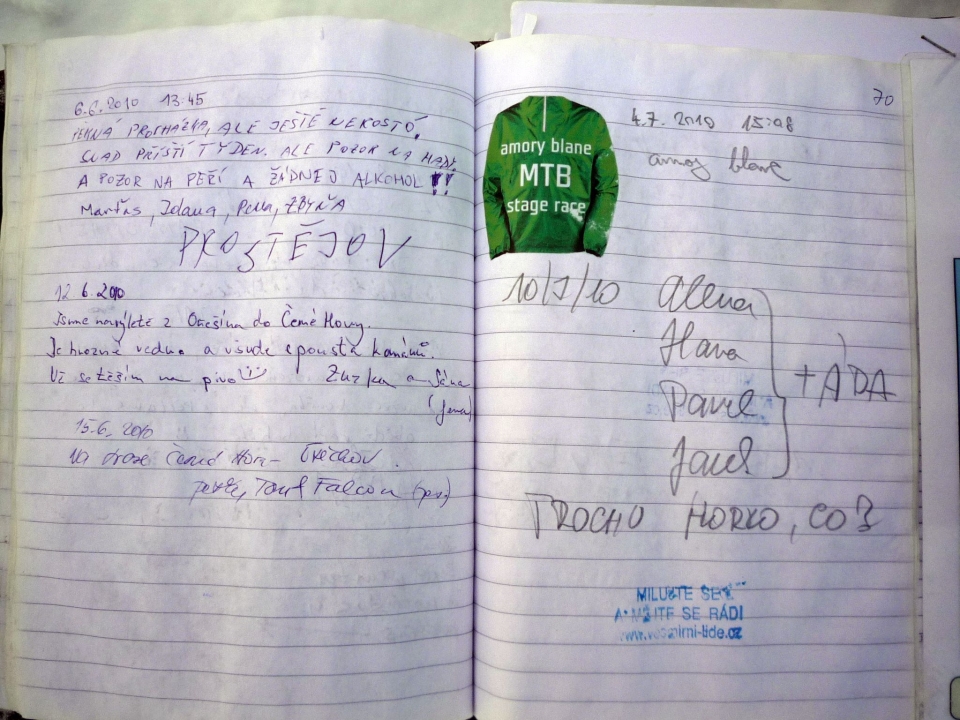 6.6.2010 13:45
PĚKNÁ PROCHÁZKA, ALE JEŠTĚ NEROSTOU,
SNAD PŘÍŠTÍ TÝDEN. ALE POZOR NA HADY
A POZOR NA PEŘÍ A ŽÁDNEJ ALKOHOL!!
Marťas, Zdana, Pena, ZBYŇA
PROSTĚJOV
12.6.2010
Jsme na výletě z do Černé Hory.
Je hrozné vedro a všude spousta komárů.
Už se těším na pivo Zuzka a
15.6.2010
Na Černá Hora -
Falcon
70
amory blane
MTB
stage race
4.7.2010 15:08
amory blane
10/7/10 Alena
Hana
Pavel
+ÁDA
TROCHU HORKO, CO?
MILUJTE SE
A MĚJTE SE RÁDI
www.vesmirni-lide.cz